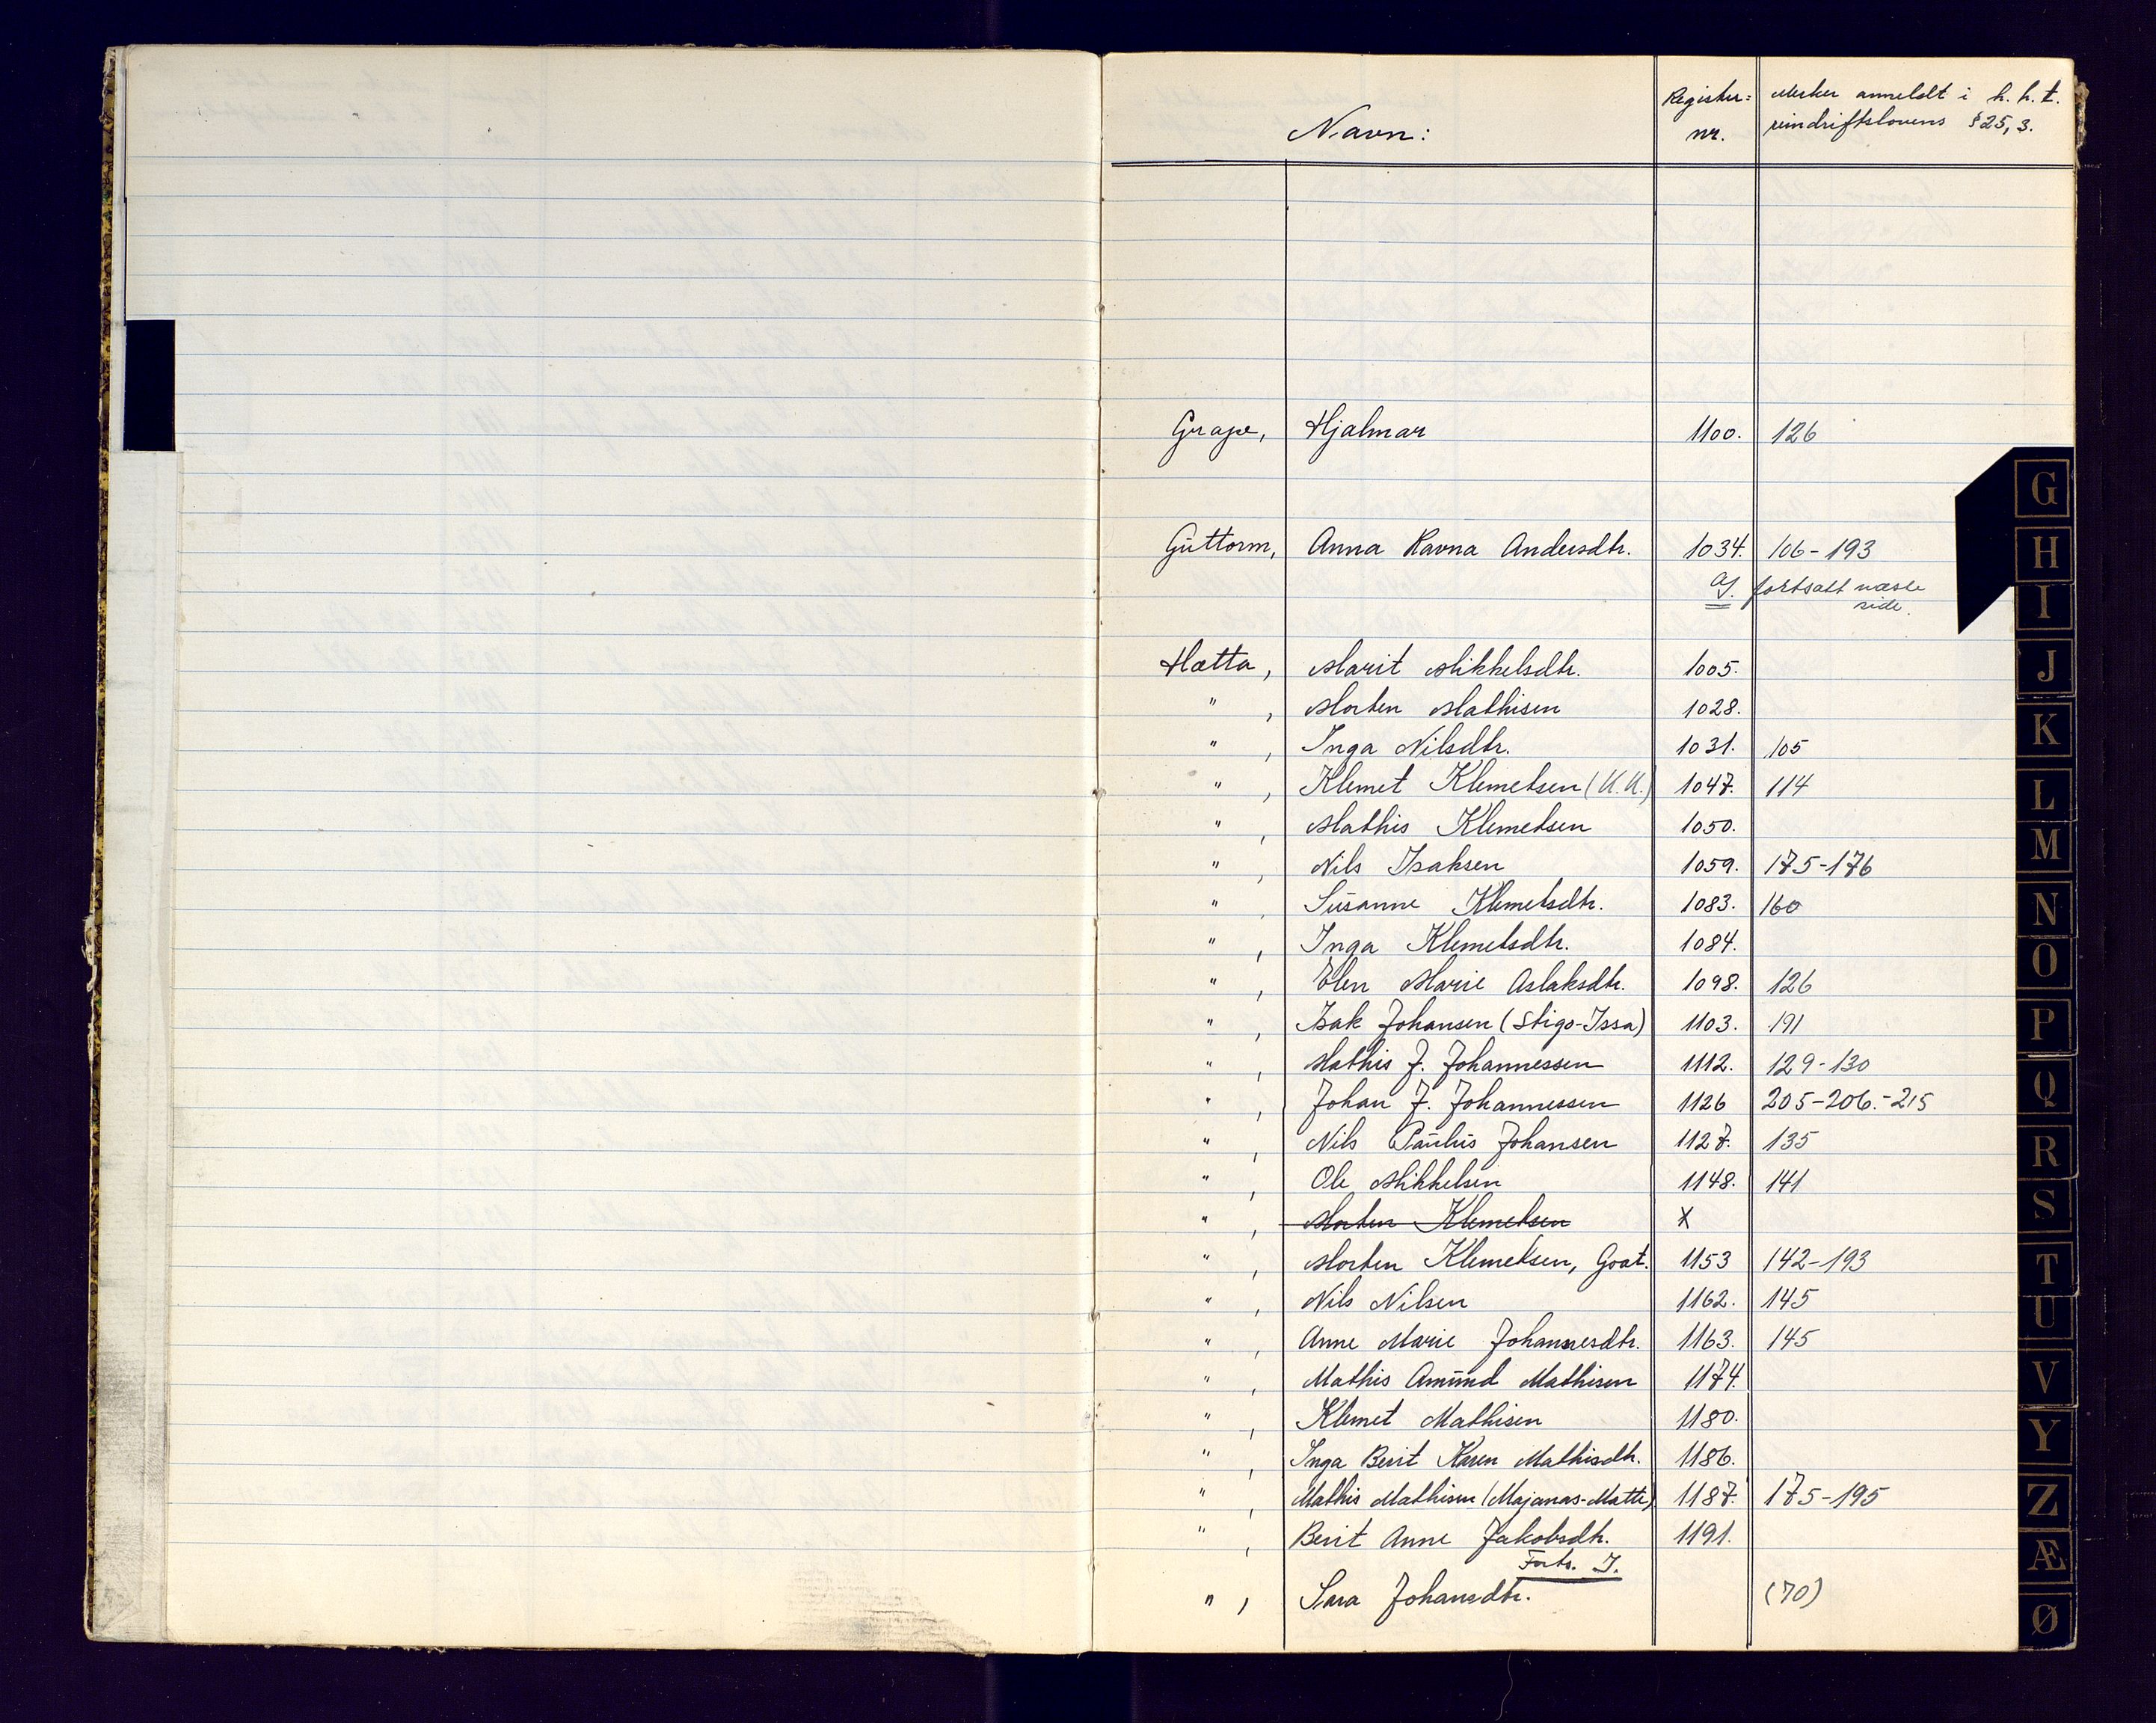 Navn: Register= nr. Merker anmeldt i h. h. t. reindriftslovens § 25, 3.
Grape, Hjalmar 1100. 126
Guttorm, Anna Ravna Andersdtr. 1034. 106-193
fortsatt næste
side.
Hætta, Marit Mikkelsdtr. 1005.
" , Morten Mathisen 1028.
" , Inga Nilsdtr. 1031. 105
" , Klemet Klemetsen (K.K.) 1047. 114
" , Mathis Klemetsen 1050.
" , Nils Isaksen 1059. 175-176
" , Susanne Klemetsdtr. 1083. 160
" , Inga Klemetsdtr. 1084.
" , Elen Marie Aslaksdtr. 1098. 126
" , Isak Johansen (Stigo-Issa) 1103. 191
" , Mathis J. Johannessen 1112. 129-130
" , Johan J. Johannessen 1126 205-206.-215
" , Nils Paulus Johansen 1127. 135
" , Ole Mikkelsen 1148. 141
" , Morten Klemetsen X
" , Morten Klemetsen, Goat. 1153 142-193
" , Nils Nilsen 1162. 145
" , Anne Marie Johannesdtr. 1163. 145
" , Mathis Amund Mathisen 1174.
" , Klemet Mathisen 1180.
" , Inga Berit Karen Mathisdtr. 1186.
" , Mathis Mathisen (Majanas-Matti) 1187. 175-195
" , Berit Anne Jakobsdtr. 1191.
Forts. I.
" , Sara Johansdtr. (70)
G
H
I
J
K
L
M
N
O
P
Q
R
S
T
U
V
Y
Z
Æ
Ø